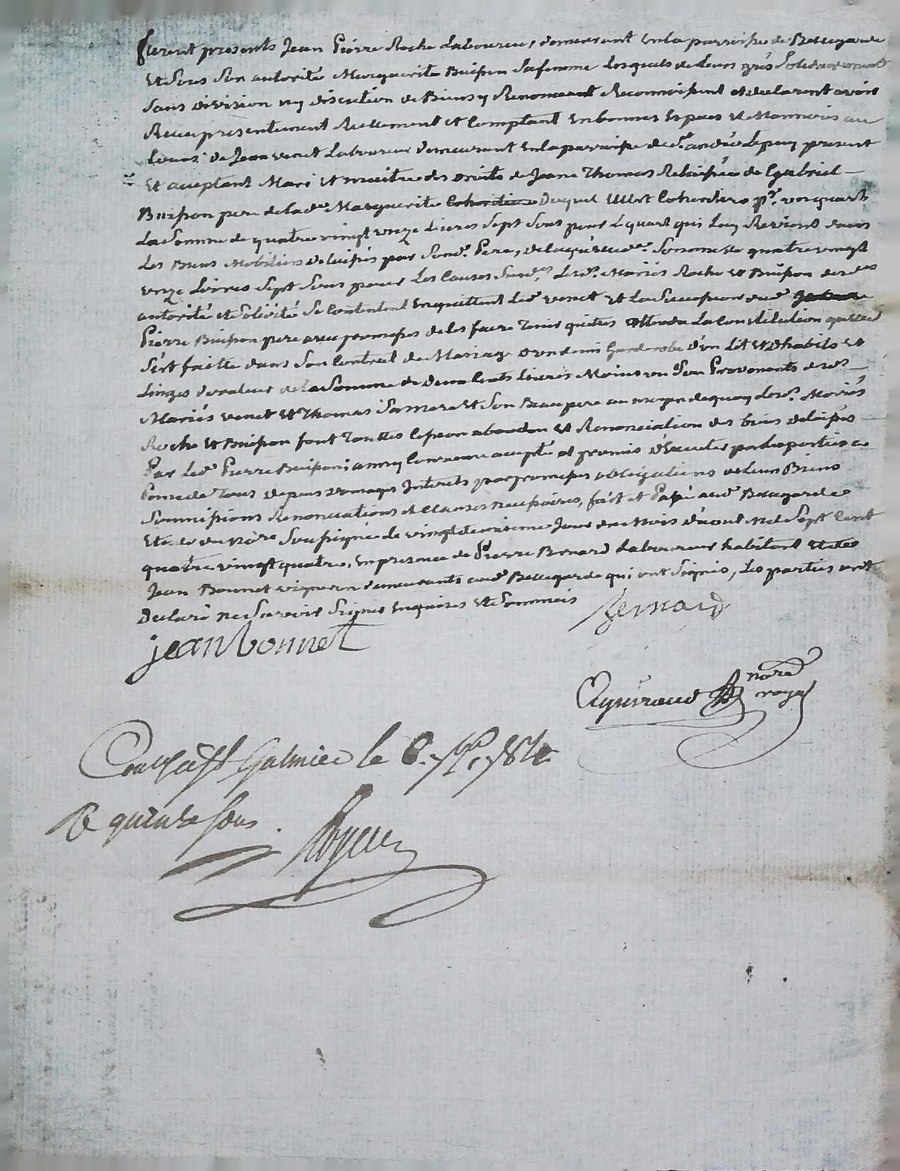 furent presents Jean Pierre Roche Laboureur, demeurant en la parroisse de Bellegarde
Et sous son autorité Marguerite Buisson sa femme Lesquels de leurs grés solidairement
sans division ny discution de Biens y Renonceant Reconnoissent et declarent avoir
Receu presentement Reellement et Comptant en bonnes Especes de Monnoie au
Cours de Jean venet Laboureur demeurant en la parroisse de St andré Le puy present
Et aceptant Mari et maitre des droits de Jeane Thomas Relaissée de Gabriel
Buisson pere de lade Marguerite duquel Elle Est Coheritiere pr. un quart
La somme de quatre vingt unze Livres sept sous pour Le quart qui Luy Revient dans
Les Biens Mobiliers delaissés par sond. Pere, de laquelle de. somme de quatre vingt
unze Livres sept sous pour Les causes susd. Lesd. Mariés Roche et Buisson desd
autorité et solidité se Contentent En quittent Led venet et La succession dud
Pierre Buisson pere avec promesse de les faire tenir quittes attendu La Constitution qu'elle
s'est faitte dans son Contrat de Mariage d'un demi Garderobe d'un Lit et D'habits et
Linges de valeur de la somme de Deux Cents Livres Moins un sou Provenants desd
Mariés venet et Thomas sa mere et son Beau pere au moyen de quoy Lesd. Mariés
Roche et Buisson font touttes cession abandon et Renonciation des biens delaissés
Par Led Pierre Buisson; ainsy Convenu accepté et promis d'Executer par les parties a
Peine de Tous depens domages Interets par promesses obligations de leurs Biens
soumissions Renonciations et clauses necessaires, fait et Passé aud Bellegarde
Etude du No.re soussigné Le vingt deuxieme Jour du Mois d'aout Mil sept Cent
quatre vingt quatre, En presence de Pierre Benard Laboureur habitant et de
Jean Bonnet vigneron demeurants aud Bellegarde qui ont signés, Les parties ont
Declaré ne savoir signer Enquises et sommés
Bernard
jean bonnet
nore
royal
Conlé a St Galmier le 6. 7bre 1784
R quinze sous.